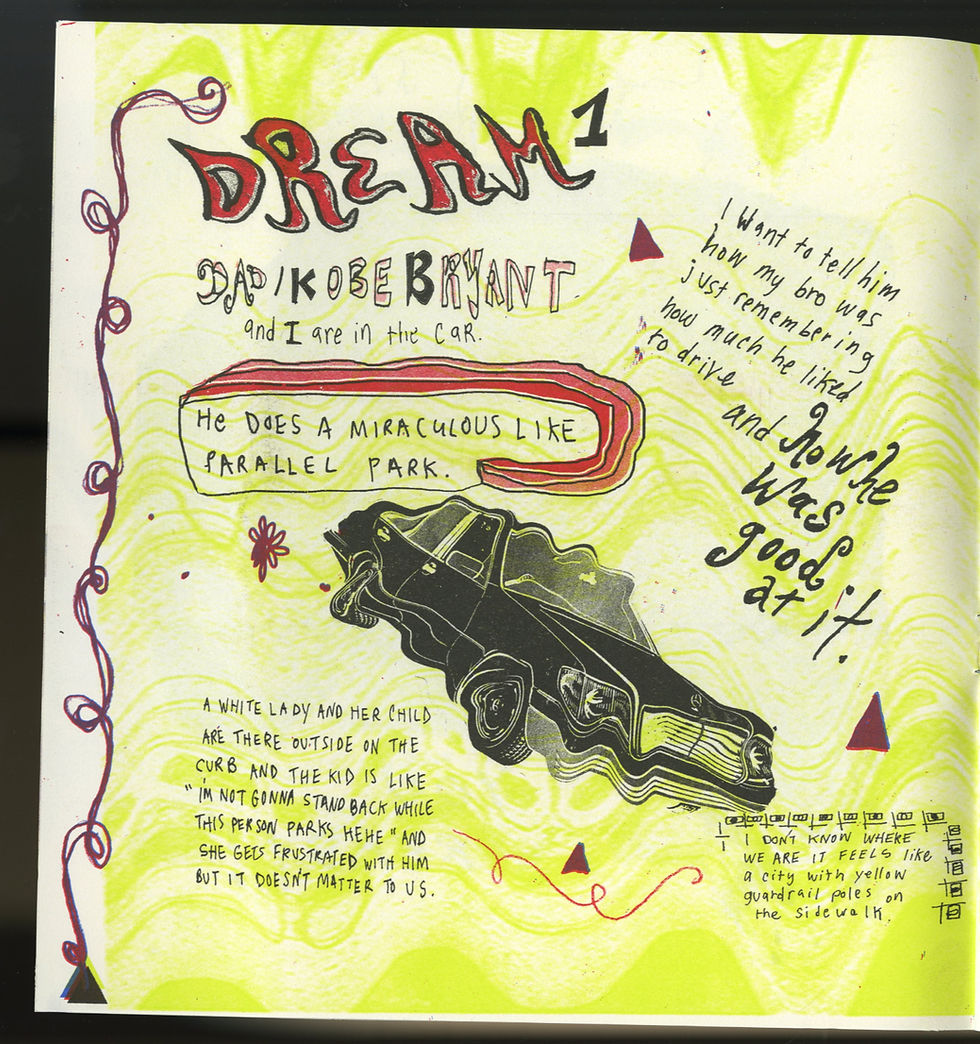 DREAM 1
DAD/KOBE BRYANT
and I are in the car.
HE DOES A MIRACULOUS LIKE
PARALLEL PARK.
I want to tell him
how my bro was
just remembering
how much he liked
to drive
and how he
was
good
at it.
A WHITE LADY AND HER CHILD
ARE THERE OUTSIDE ON THE
CURB AND THE KID IS LIKE
"I'M NOT GONNA STAND BACK WHILE
THIS PERSON PARKS HEHE" AND
SHE GETS FRUSTRATED WITH HIM
BUT IT DOESN'T MATTER TO US.
I DON'T KNOW WHERE
WE ARE IT FEELS like
a city with yellow
guardrail poles on
the sidewalk.